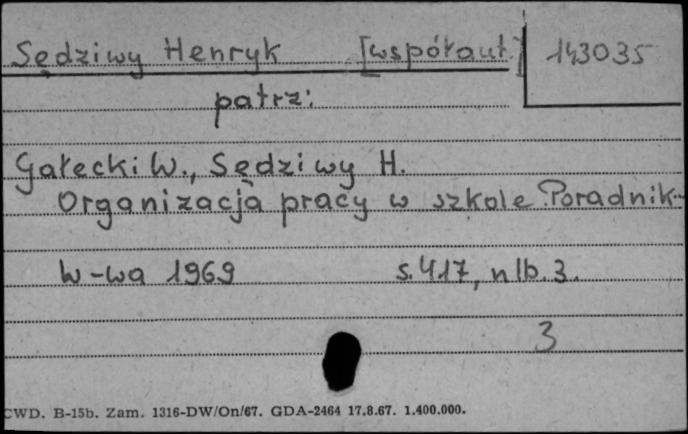 Sędziwy Henryk [współaut.] 143035
patrz:
Gałecki W., Sędziwy H.
Organizacja pracy w szkole. Poradnik.
W-wa 1969 s. 417, nlb. 3.
3
CWD. B-15b. Zam. 1316-DW/On/67. GDA-2464 17.8.67. 1.400.000.